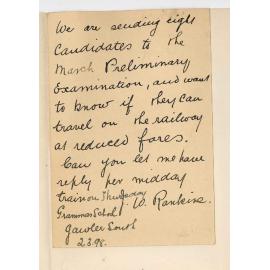 We are sending eight
Candidates to the
March Preliminary
Examination, and want
to know if they can
travel on the railway
at reduced fares.
Can you let me have
reply per midday
train on Thursday
W. Rankine.
Grammar School
Gawler South
2.3.98.